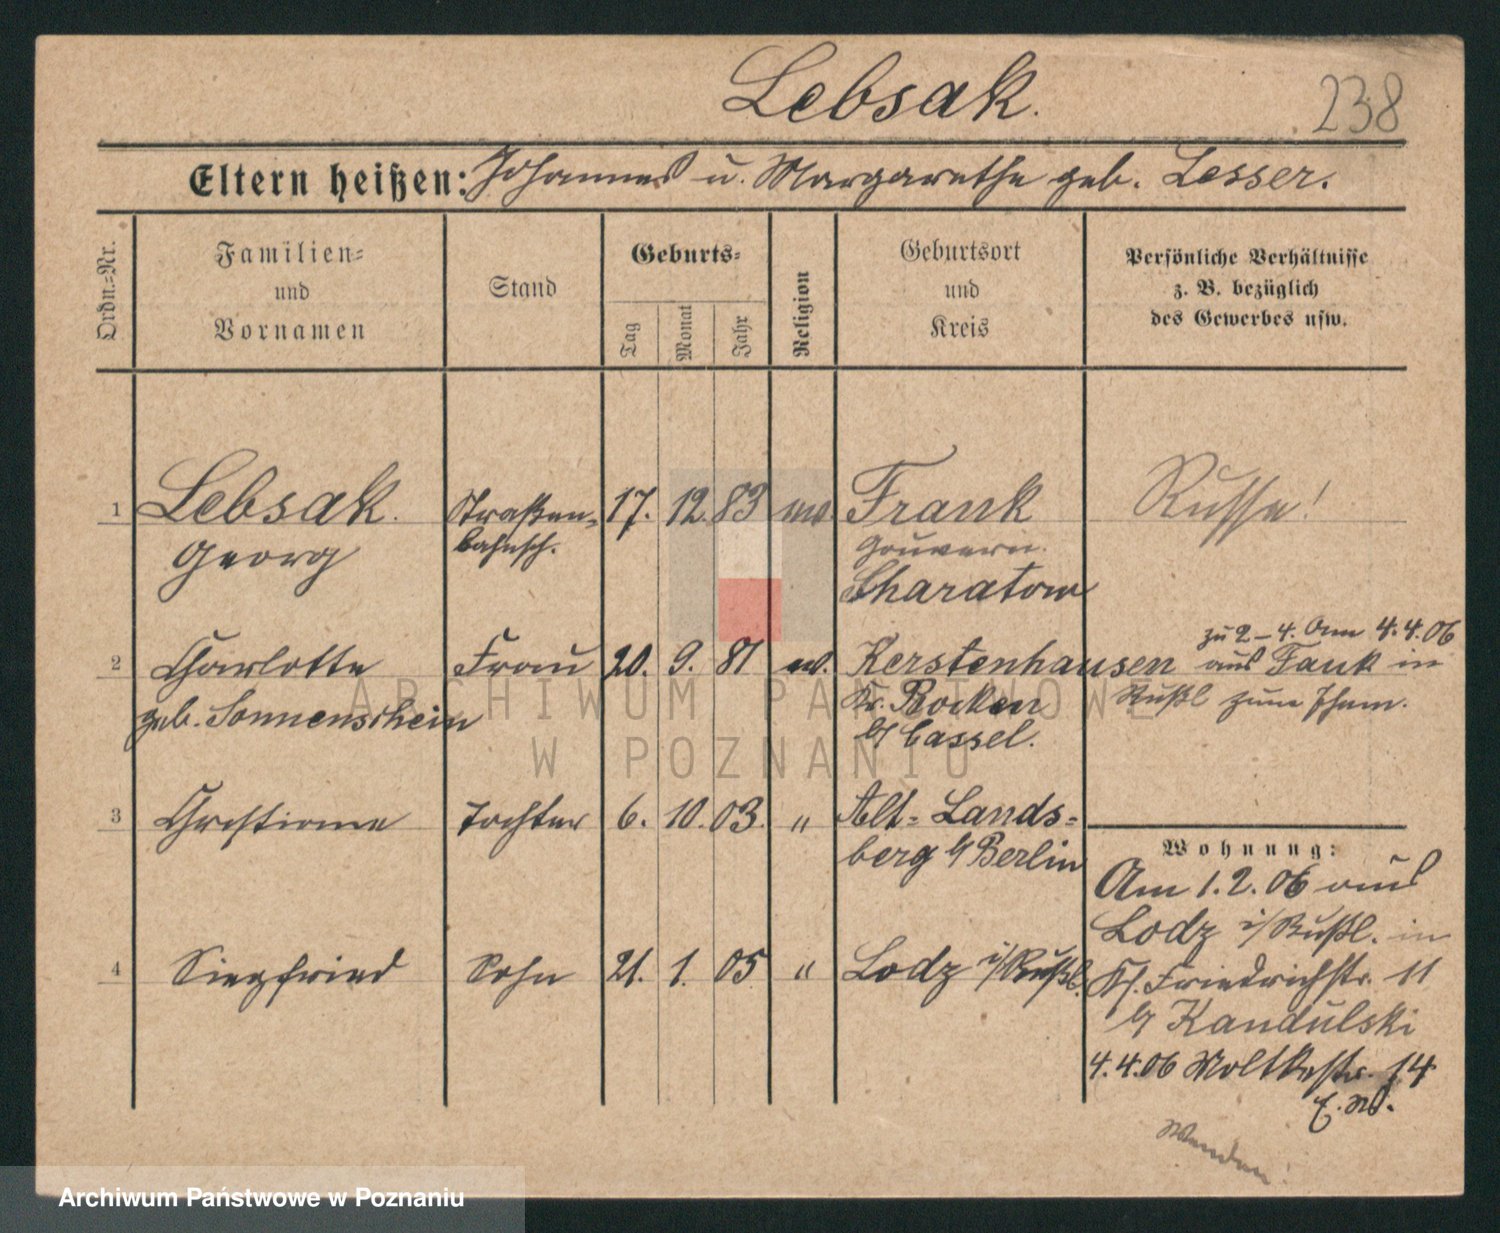 Lebsak.
238
Eltern heißen: Johannes u. Margarethe geb. Lesser.
Ordn.-Nr.
Familien-
und
Vornamen
Stand
Geburts-
Tag
Monat
Jahr
Religion
Geburtsort
und
Kreis
Persönliche Verhältnisse
z. B. bezüglich
des Gewerbes usw.
1 Lebsak. Straßen- 17. 12. 83 ev. Frank Russe!
Georg bahnsch. Gouvern.
Sharatow
zu 2-4. Am 4.4.06
2 Charlotte Frau 20. 9. 81 ev. Kerstenhausen aus Fank in
geb. Sonnenschein Kr. Rocken Rußl zum Ehem.
b/ Cassel.
3 Christiane Tochter 6. 10. 03. " Alt-Lands-
berg b/ Berlin
Wohnung:
Am 1.2.06 aus
Lodz i/Rußl. in
4 Siegfried Sohn 21. 1. 05 " Lodz i/Rußl. Kl. Friedrichstr. 11
b/ Kandulski
4.4.06 Moltkestr. 14
E.M.
Wenden!
ARCHIWUM PAŃSTWOWE
W POZNANIU
Archiwum Państwowe w Poznaniu